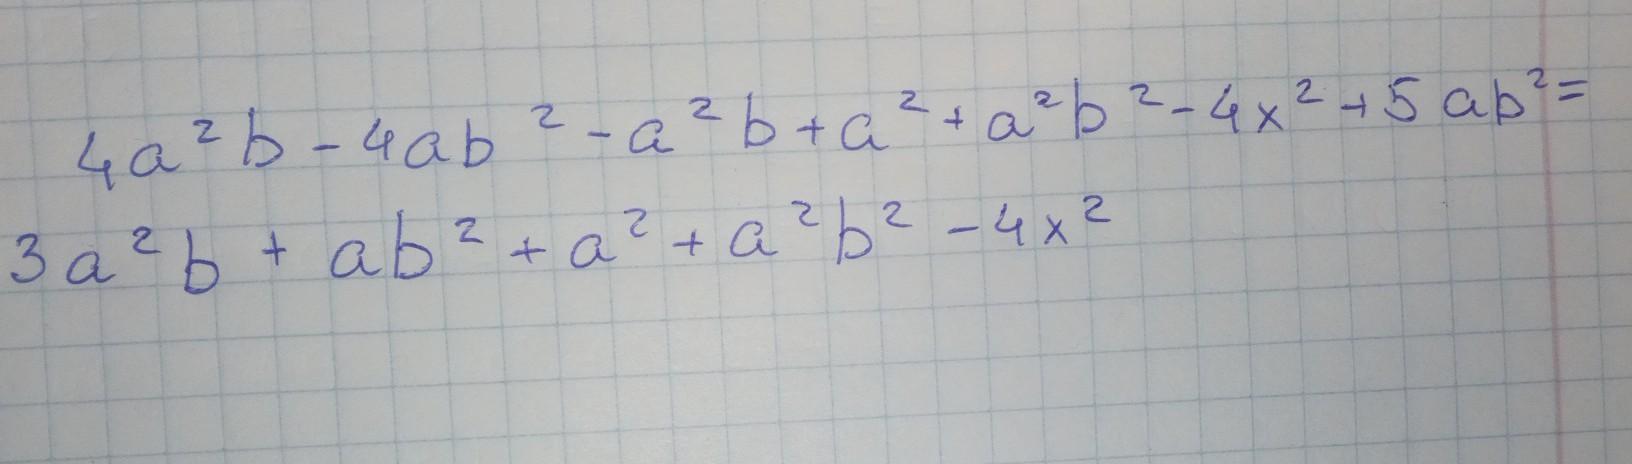 4a²b - 4ab² - a²b + a² + a²b² - 4x² + 5ab² =
3a²b + ab² + a² + a²b² - 4x²